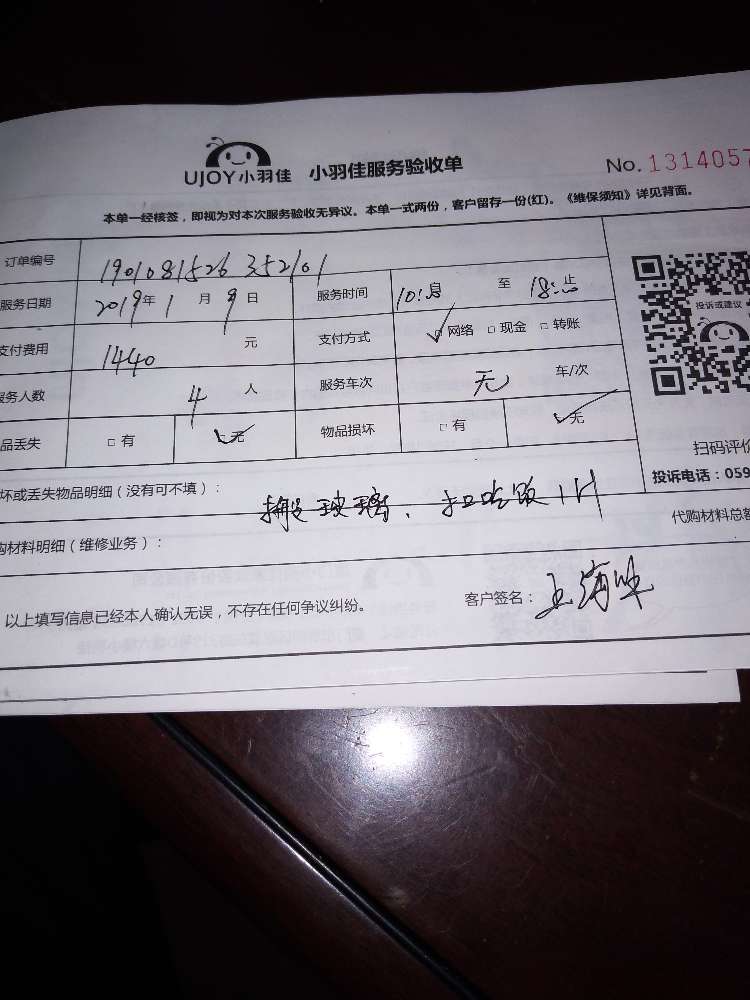 UJOY小羽佳 小羽佳服务验收单 No. 1314057
本单一经核签，即视为对本次服务验收无异议。本单一式两份，客户留存一份(红)。《维保须知》详见背面。
订单编号 1901081526352101
服务日期 2019年1月9日 服务时间 10: 至 18:
支付费用 1440 元 支付方式 ☑网络 □现金 □转账
服务人数 4 人 服务车次 无 车/次
品丢失 □有 ☑无 物品损坏 □有 ☑无
投诉或建议
扫码评价
坏或丢失物品明细（没有可不填）： 投诉电话：059
搬玻璃、扣吃饭1H
购材料明细（维修业务）： 代购材料总额
以上填写信息已经本人确认无误，不存在任何争议纠纷。 客户签名：